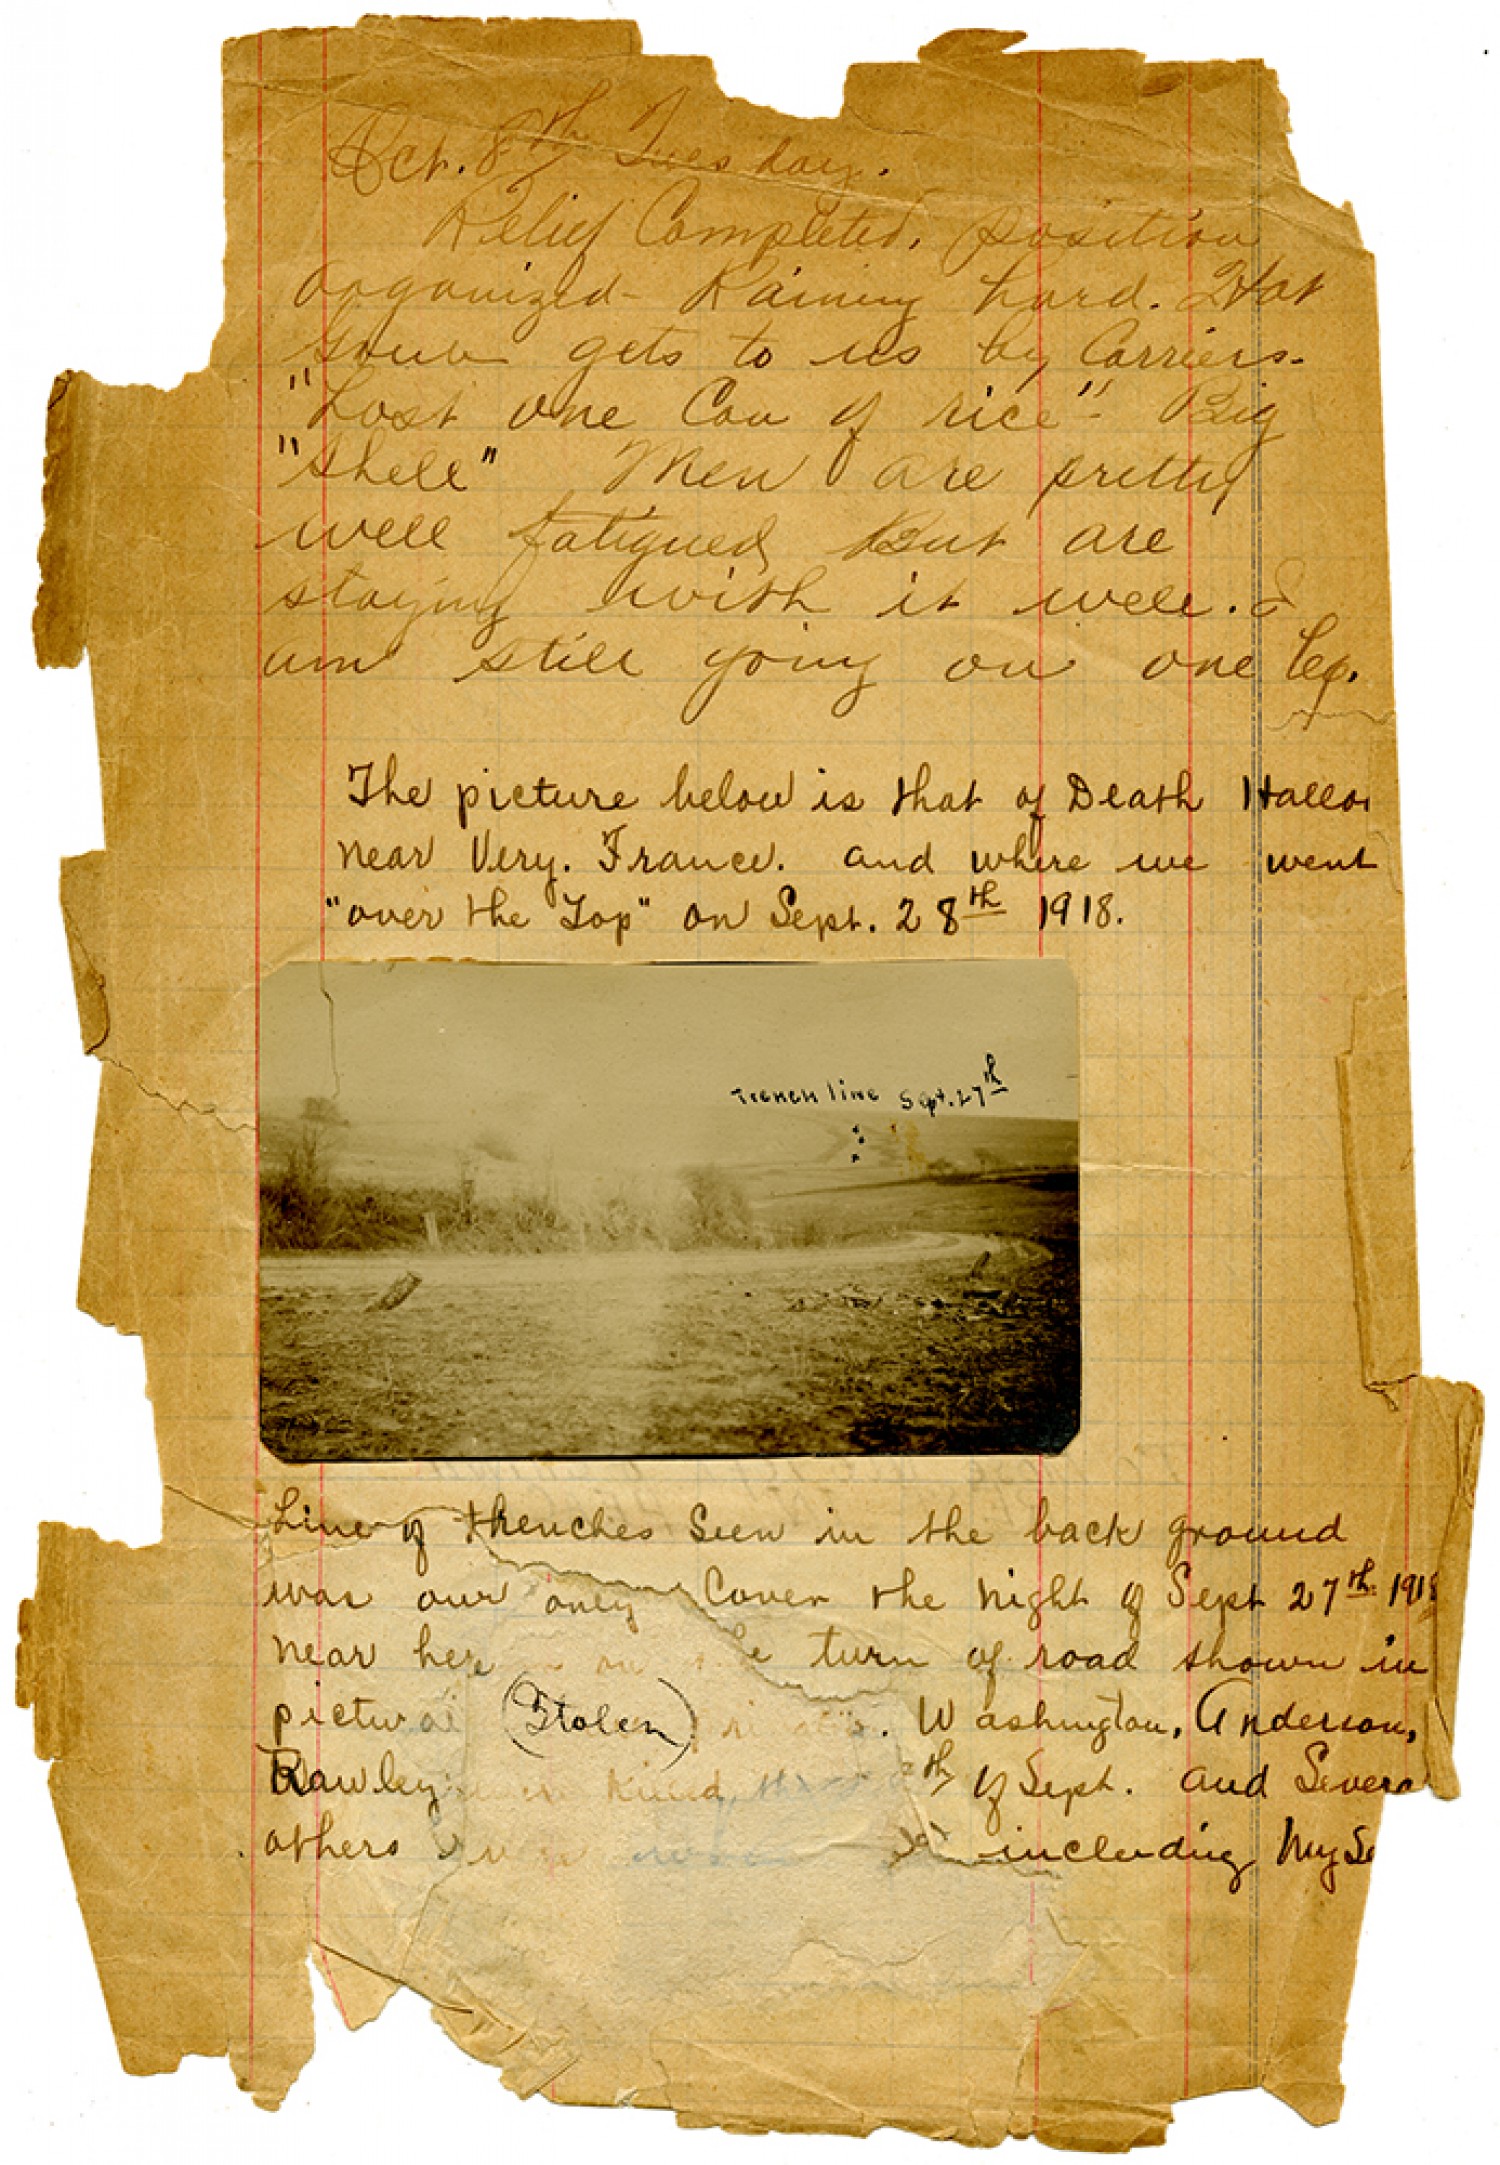 Oct. 8th Tuesday.
Relief Completed, position
organized - Raining hard. Hot
gets to us by Carriers.
"Lost one Can of rice" - Big
"Shell" Men are pretty
well fatigued But are
staying with it well. I
am still going on one leg.
The picture below is that of Death Hallo
near Very. France. and where we went
"over the Top" on Sept. 28th 1918.
Trench line Sept. 27th
Line of thenches Seen in the back ground
was our only Cover the night of Sept 27th 1918
near here on turn of road shown in
pictu (Stolen) . Washington, Anderson,
Rawley killed th of Sept. and Severa
others including My Se